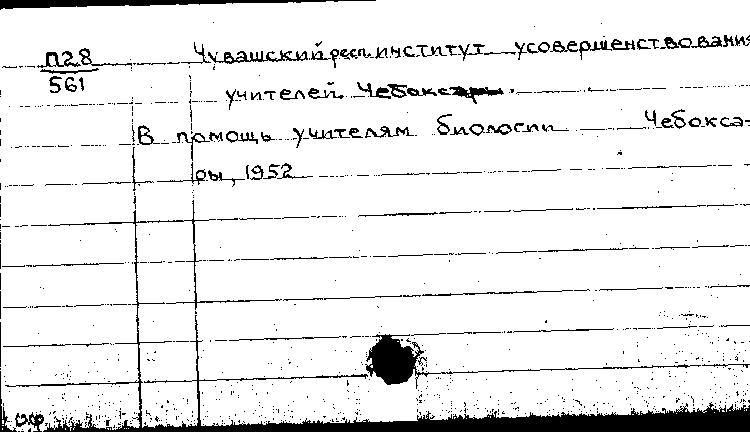 П28
561
Чувашский респ. институт усовершенствования
учителей. Чебоксары.
В помощь учителям биологии Чебокса-
ры, 1952